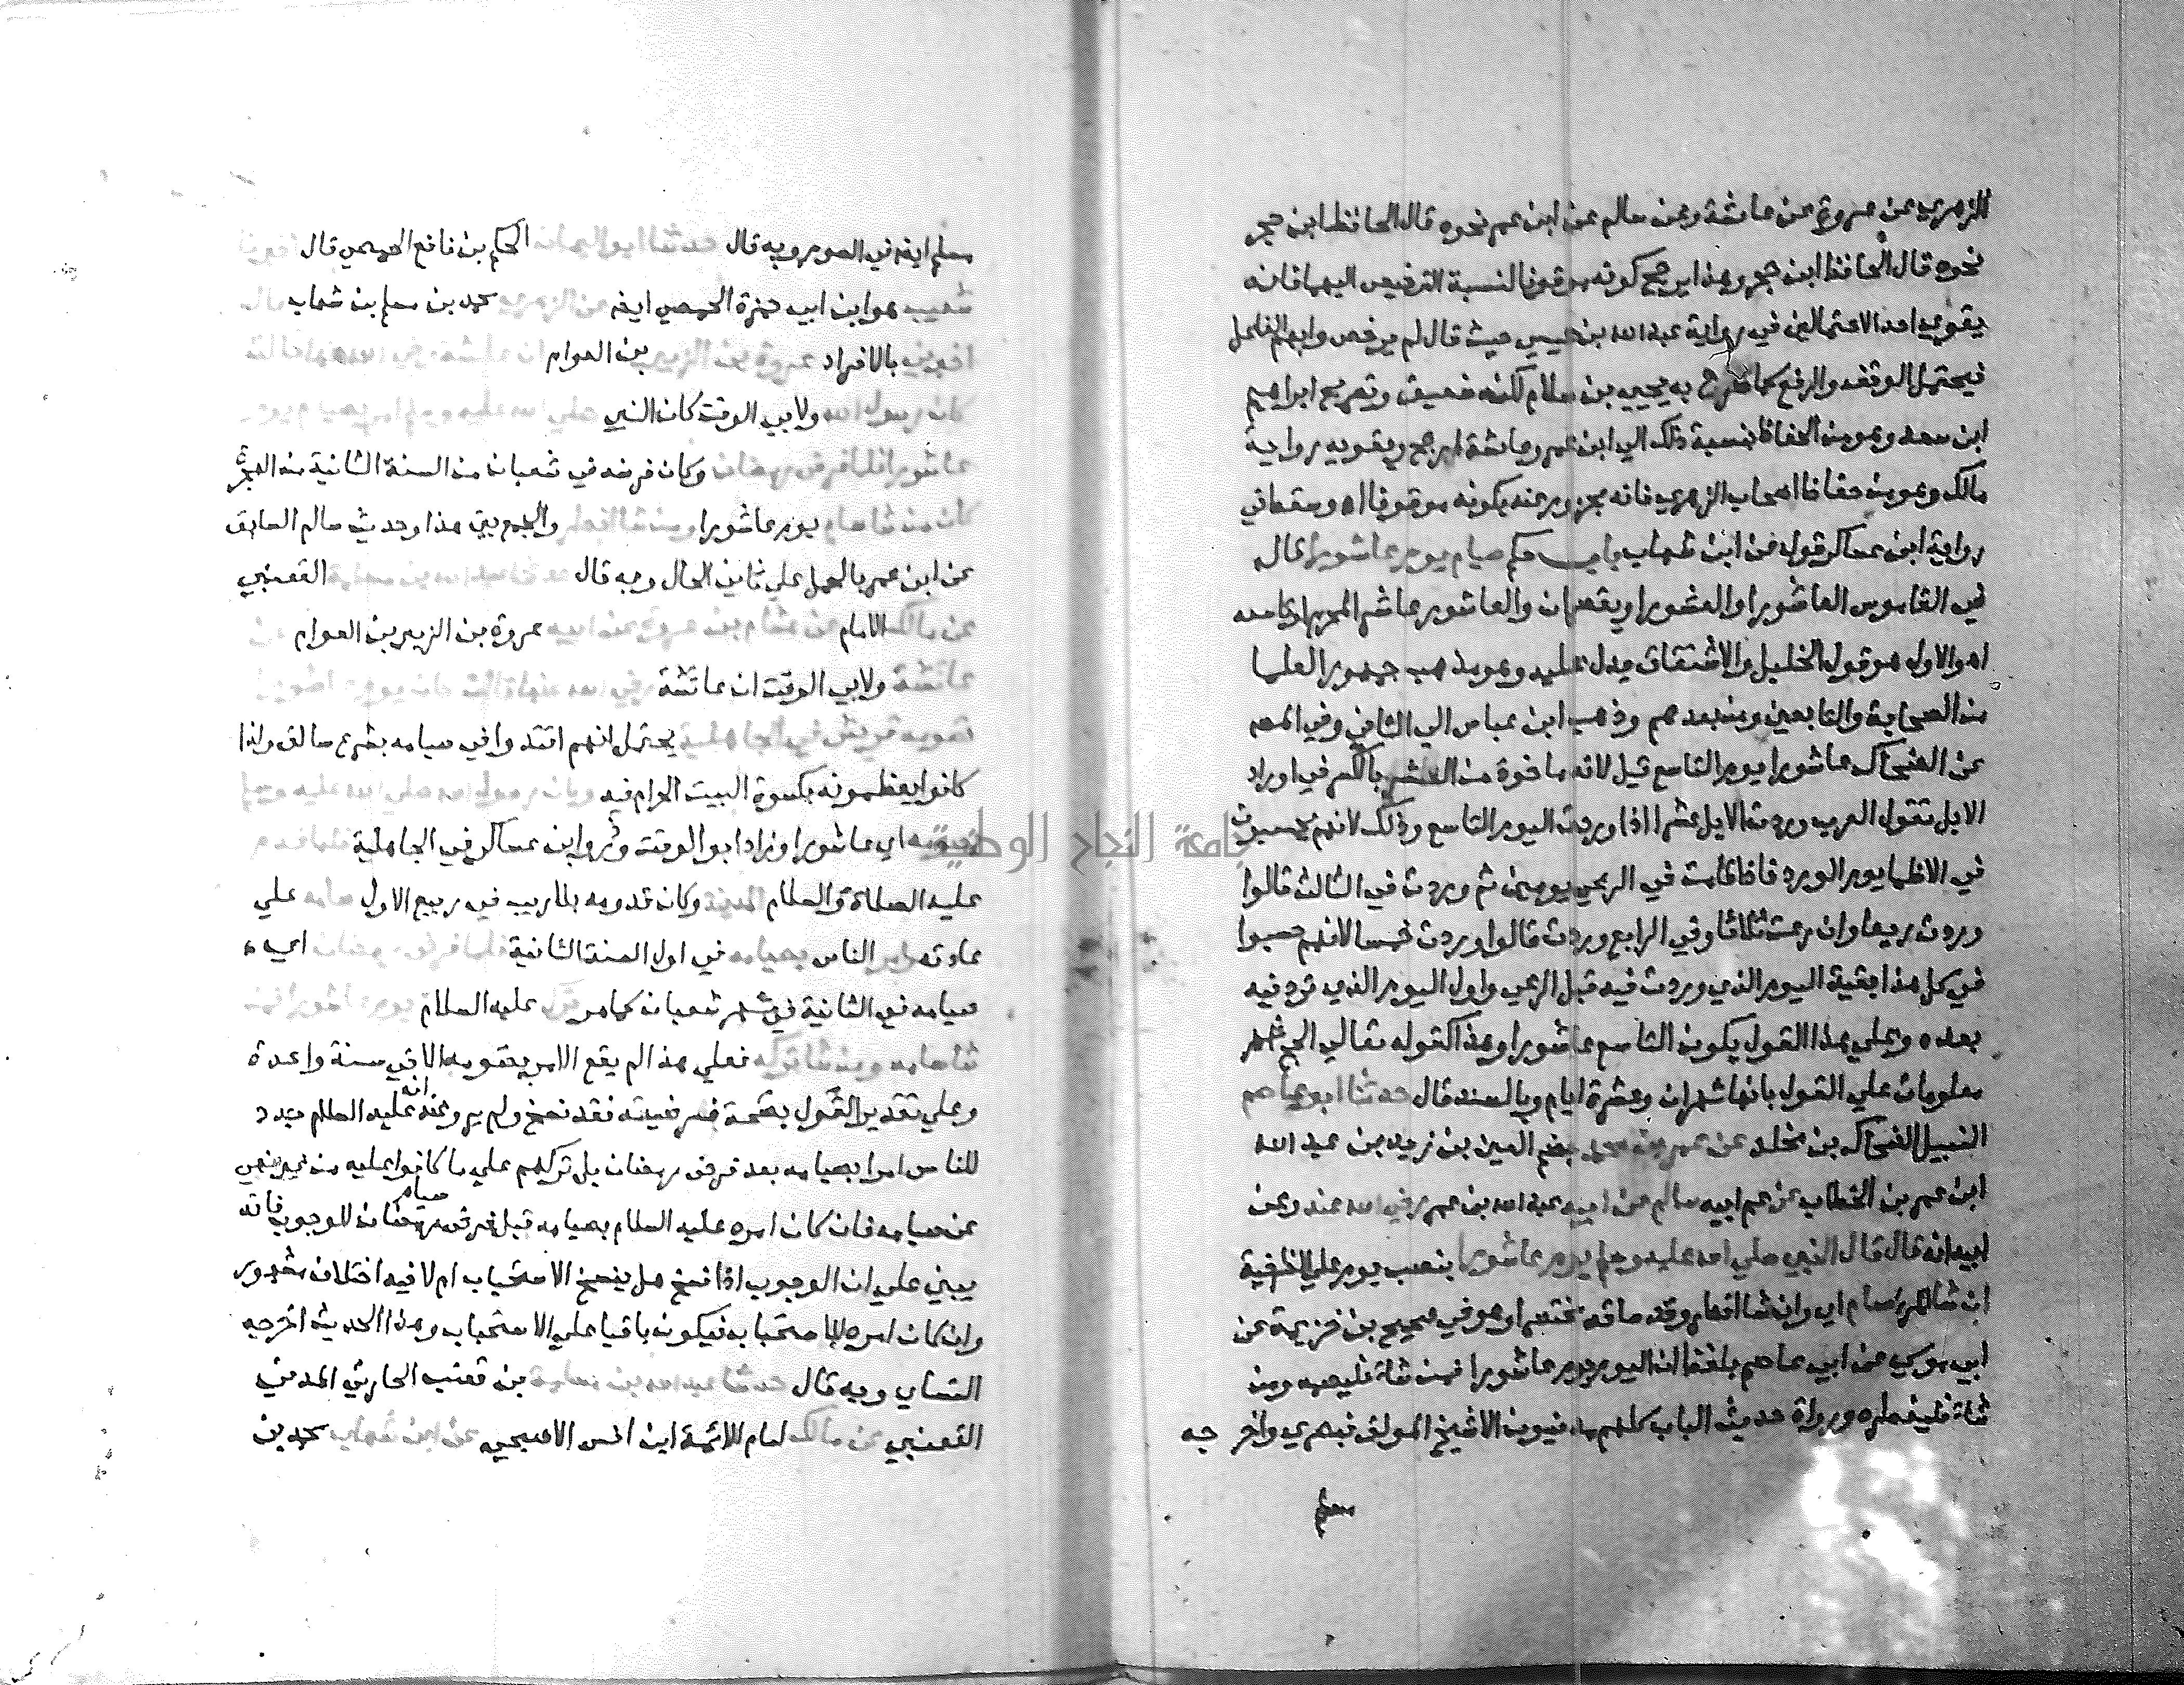 الزهري عن عروة عن عائشة وعن سالم عن ابن عمر نحوه قال الحافظ ابن حجر
نحوه قال الحافظ ابن حجر وهذا يرجح كونه موقوفا لنسبة الترخيص اليهما فانه
يقوي احد الاحتمالين في رواية عبد الله بن عيسى حيث قال لم يرخص وابهم الفاعل
فيحتمل الوقف والرفع كما صرح به يحيى بن سلام لكنه ضعيف وتصريح ابراهيم
ابن سعد وهو من الحفاظ بنسبة ذلك الي ابن عمر وعائشة ارجح ويقويه رواية
مالك وهو من حفاظ اصحاب الزهري فانه مجزوم عنه بكونه موقوفا اه وسقط في
رواية ابن عساكر قوله عن ابن شهاب باب حكم صيام يوم عاشورا قال
في القاموس العاشورا والعشورا ويقصران والعاشور عاشر المحرم او تاسعه
اه والاول هو قول الخليل والاشتقاق يدل عليه وهو مذهب جمهور العلما
من الصحابة والتابعين ومن بعدهم وذهب ابن عباس الي الثاني وفي المص
عن الضحاك عاشورا يوم التاسع قيل لانه ماخوذ من العشر بالكسر في اوراد
الابل تقول العرب وردت الابل عشرا اذا وردت اليوم التاسع وذلك لانهم يحسبون
في الاظما يوم الورد فاذا قامت في الرعي يومين ثم وردت في الثالث قالوا
وردت ربعا وان رعت ثلاثا وفي الرابع وردت قالوا وردت خمسا لانهم حسبوا
في كل هذا بقية اليوم الذي وردت فيه قبل الرعي واول اليوم الذي ترد فيه
بعده وعلي هذا القول يكون التاسع عاشورا وهذا كقوله تعالي الحج اشهر
معلومات علي القول بانها شهران وعشرة ايام وبالسند قال حدثنا ابو عاصم
النبيل الضحاك بن مخلد عن عمر بن محمد بضم العين بن زيد بن عبد الله
ابن عمر بن الخطاب عن عم ابيه سالم عن ابيه عبد الله بن عمر رضي الله عنه وعن
ابيه انه قال قال النبي صلي الله عليه وسلم يوم عاشورا بنصب يوم علي الظرفية
ان شا المرء صام اي وان شا افطر وقد ساقه مختصرا وهو في صحيح بن خزيمة عن
ابي موسى عن ابي عاصم بلفظ ان اليوم يوم عاشورا فمن شاء فليصمه ومن
شاء فليفطره ورواة حديث الباب كلهم مدنيون الا شيخ المولف فبصري واخرجه
مسلم
مسلم ايضا في الصوم وبه قال الحكم بن نافع الحمصي قال
شعيب هو ابن ابي حمزة الحمصي ايضا محمد بن مسلم بن شهاب
اخبرني بالافراد بن العوام
كان رسول الله ولابي الوقت كان النبي
عاشورا فلما فرض رمضان وكان فرضه في شعبان من السنة الثانية من الهجرة
كان من شا صام يوم عاشورا والجمع بين هذا وحديث سالم السابق
عن ابن عمر بالحمل علي ثاني الحال وبه قال القعنبي
عن مالك الامام عروة بن الزبير بن العوام
عائشة ولابي الوقت ان عائشة
تصومه قريش في الجاهلية يحتمل انهم اقتدوا في صيامه بشرع سالف ولذا
كانوا يعظمونه بكسوة البيت الحرام فيه
يصومه اي عاشورا وزاد ابو الوقت وذر وابن عساكر في الجاهلية
عليه الصلاة والسلام المدينة وكان قدومه بلا ريب في ربيع الاول صامه علي
عادته وامر الناس بصيامه في اول السنة الثانية اي
صيامه في الثانية في شهر شعبان كما مر عليه السلام
شا صامه ومن شا تركه فعلي هذا لم يقع الامر بصومه الا في سنة واحدة
وعلي تقدير القول بصحة فرضيته فقد نسخ ولم يرو عنه انه عليه السلام جدد
للناس امرا بصيامه بعد فرض رمضان بل تركهم علي ما كانوا عليه من غير نهي
عن صيامه فان كان امره عليه السلام بصيامه قبل فرض صيام رمضان للوجوب فانه
يبني علي ان الوجوب اذا نسخ هل ينسخ الاستحباب ام لا فيه اختلاف مشهور
وان كان امره للاستحباب فيكون باقيا علي الاستحباب وهذا الحديث اخرجه
النساي وبه قال حدثنا عبد الله بن مسلمة بن قعنب الحارثي المدني
القعنبي عن مالك امام الائمة ابن انس الاصبحي عن ابن شهاب محمد بن
جامعة النجاح الوطنية